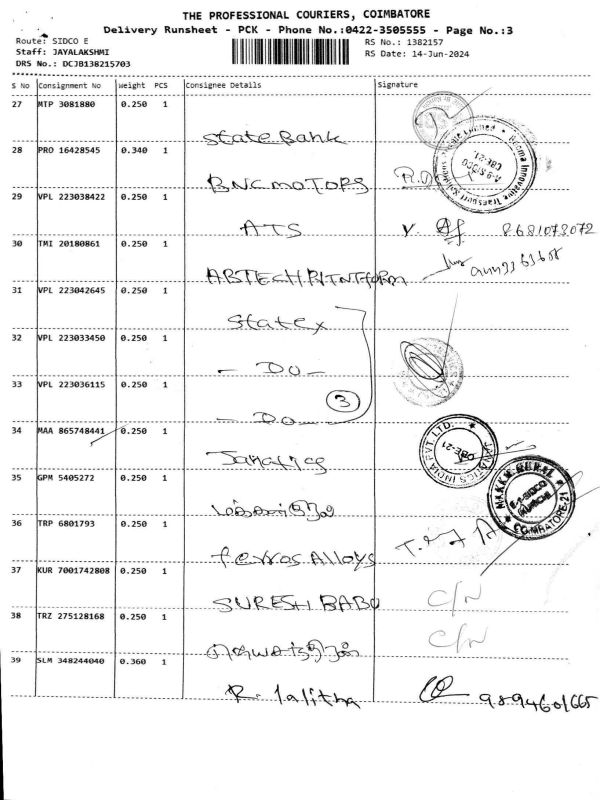 THE PROFESSIONAL COURIERS, COIMBATORE
Delivery Runsheet - PCK - Phone No.:0422-3505555 - Page No.:3
Route: SIDCO E RS No.: 1382157
Staff: JAYALAKSHMI RS Date: 14-Jun-2024
DRS No.: DCJB138215703
S No Consignment No Weight PCS Consignee Details Signature
27 MTP 3081880 0.250 1
State Bank
28 PRO 16428545 0.340 1
BNC MOTORS
29 VPL 223038422 0.250 1
ATS 8681073072
30 TMI 20180861 0.250 1
ABTECH
31 VPL 223042645 0.250 1
Statex
32 VPL 223033450 0.250 1
- DO -
33 VPL 223036115 0.250 1
- DO - 3
34 MAA 865748441 0.250 1
Janatics
JANATICS INDIA PVT. LTD.
CBE-21
35 GPM 5405272 0.250 1
36 TRP 6801793 0.250 1
ferros Alloys
37 KUR 7001742808 0.250 1
SURESH BABU C/N
38 TRZ 275128168 0.250 1
C/N
39 SLM 348244040 0.360 1
R. lalitha 9894601665